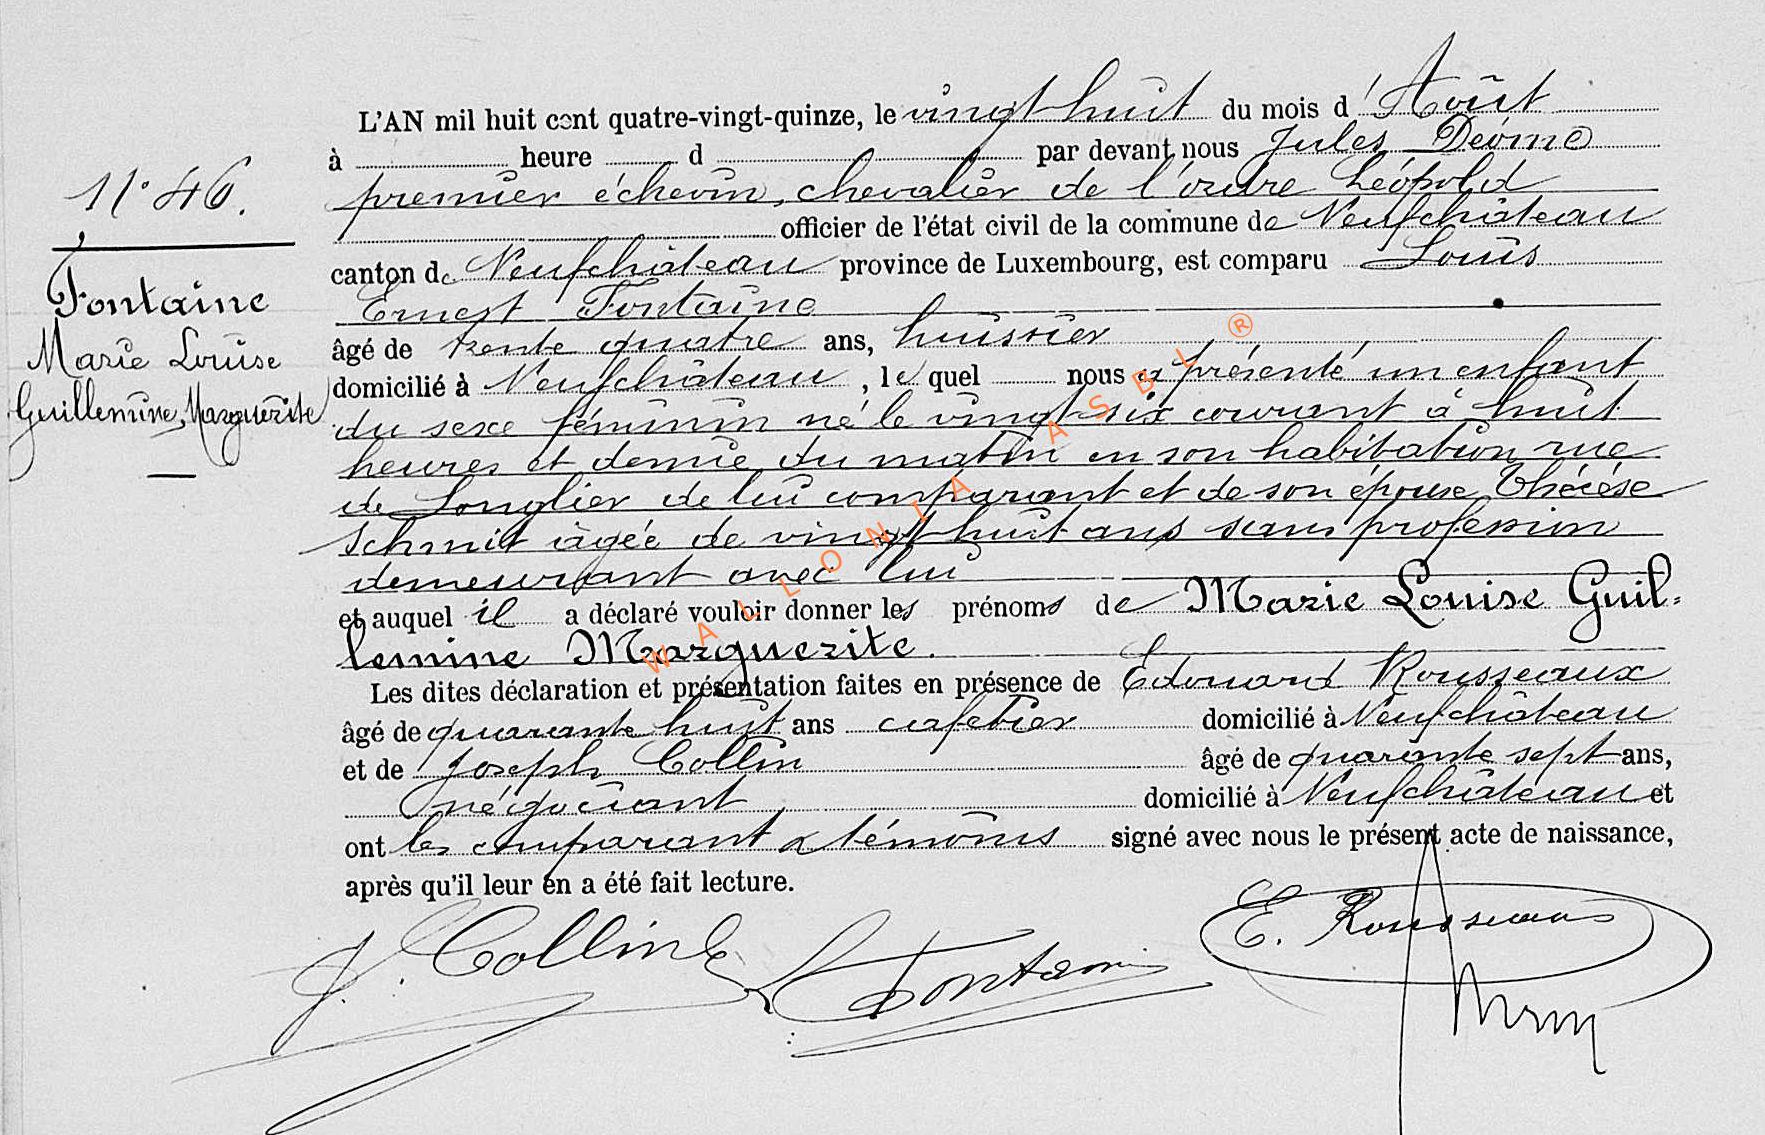 N° 46.
Fontaine
Marie Louise
Guillemine, Marguerite
L'AN mil huit cent quatre-vingt-quinze, le vingt huit du mois d'Août
à heure d par devant nous Jules
premier échevin, chevalier de l'ordre Léopold
officier de l'état civil de la commune de Neufchâteau
canton de Neufchâteau province de Luxembourg, est comparu Louis
Ernest Fontaine
âgé de trente quatre ans, huissier
domicilié à Neufchâteau, lequel nous a présenté un enfant
du sexe féminin né le vingt-six courant à huit
heures et demie du matin en son habitation rue
de Longlier de lui comparant et de son épouse Thérèse
Schmit âgée de vingt huit ans sans profession
demeurant avec lui
et auquel il a déclaré vouloir donner les prénoms de Marie Louise Guil=
lemine Marguerite.
Les dites déclaration et présentation faites en présence de Edouard Rousseaux
âgé de quarante huit ans cafetier domicilié à Neufchâteau
et de Joseph Collin âgé de quarante sept ans,
négociant domicilié à Neufchâteau et
ont les comparant & témoins signé avec nous le présent acte de naissance,
après qu'il leur en a été fait lecture.
J. Collin L Fontaine E. Rousseaux
WALLONIA ASBL ®